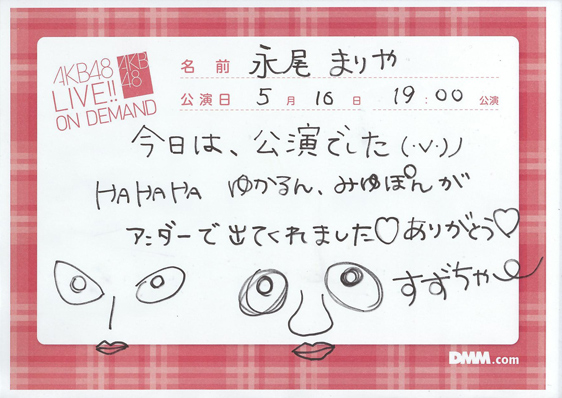 AKB48
LIVE!!
ON DEMAND
AKB
48
名前 永尾まりや
公演日 5月16日 19:00 公演
今日は、公演でした(・v・)ノ
HAHAHA ゆかるん、みゆぽんが
アンダーで出てくれました♡ありがとう♡
すずちゃん
DMM.com